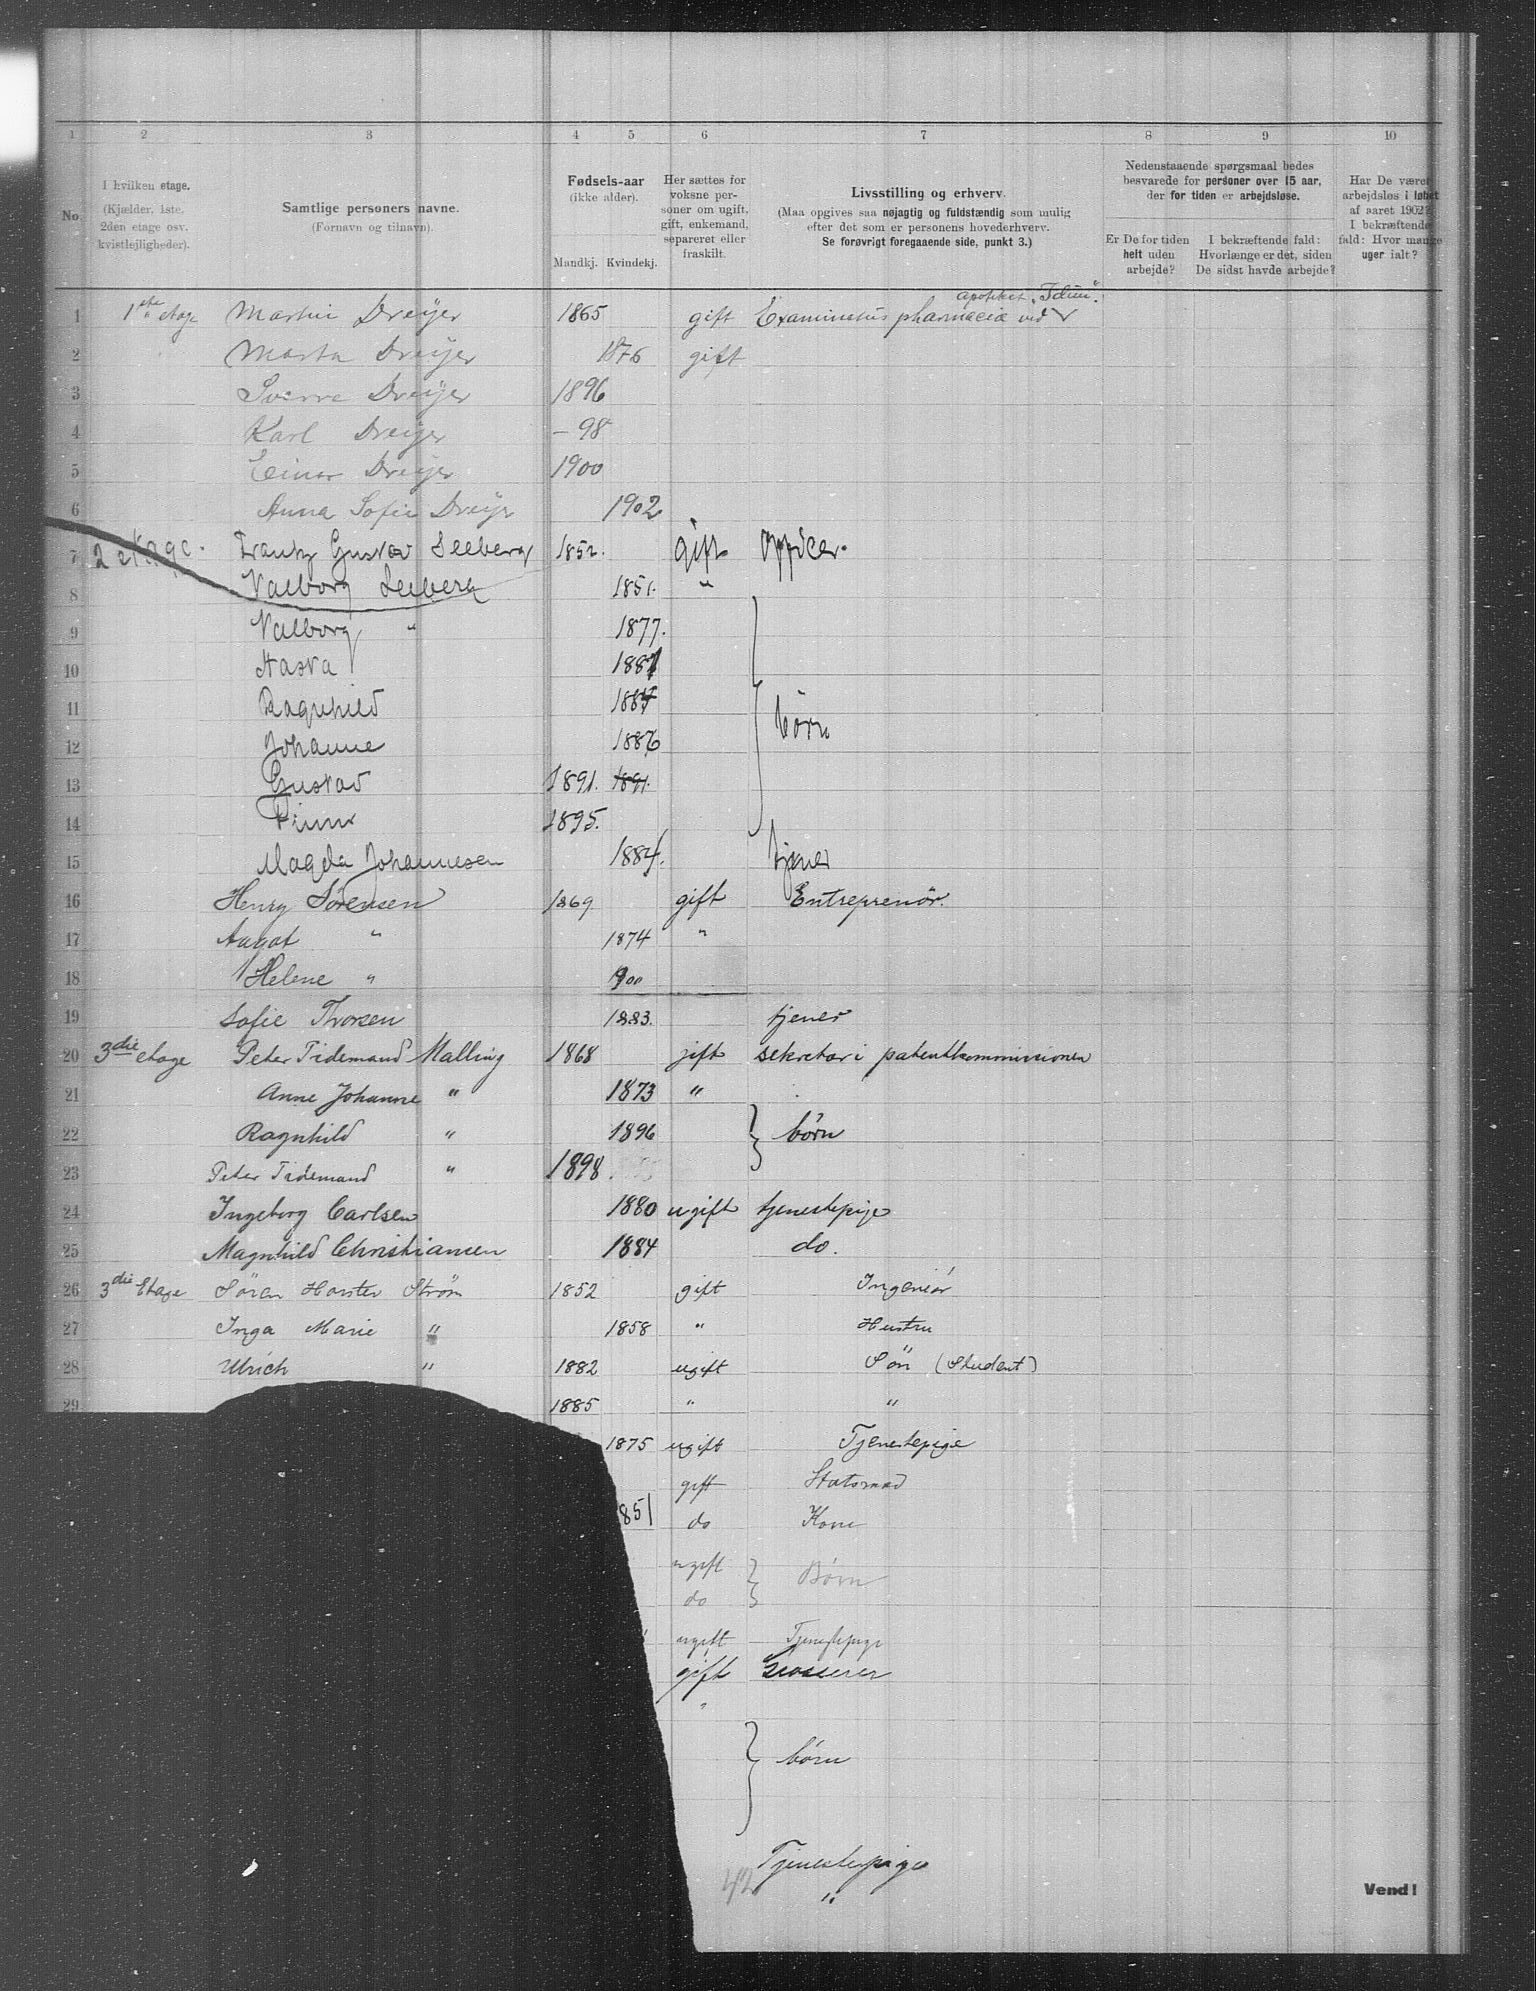 1 2 3 4 5 6 7 8 9 10
No.
I hvilken etage.
(Kjælder, 1ste,
2den etage osv.
kvistlejligheder).
Samtlige personers navne.
(Fornavn og tilnavn).
Fødsels-aar
(ikke alder).
Mandkj. Kvindekj.
Her sættes for
voksne per-
soner om ugift,
gift, enkemand,
separeret eller
fraskilt.
Livsstilling og erhverv.
(Maa opgives saa nøjagtig og fuldstændig som mulig
efter det som er personens hovederhverv.
Se forøvrigt foregaaende side, punkt 3.)
Nedenstaaende spørgsmaal bedes
besvarede for personer over 15 aar,
der for tiden er arbejdsløse.
Er De for tiden
helt uden
arbejde?
I bekræftende fald:
Hvorlænge er det, siden
De sidst havde arbejde?
Har De været
arbejdsløs i løbet
af aaret 1902?
I bekræftende
fald: Hvor mange
uger ialt?
apotheket "Idun".
1 1ste etage Martin Dreÿer 1865 gift Examinatus pharmacia ved
2 Marta Dreÿer 1876 gift
3 Sverre Dreÿer 1896
4 Karl Dreÿer – 98
5 Einar Dreÿer 1900
6 Anna Sofie Dreÿer 1902
7 2 etage. Frantz Gustav Seeberg 1852. gift officer.
8 Valborg Seeberg 1851. "
9 Valborg " 1877.
10 Aasta 1881
11 Ragnhild 1884 børn
12 Johanne 1886
13 Gustav 1891. 1891.
14 Finn 1895.
15 Magda Johannesen 1884. tjener
16 Henry Sørensen 1869 gift Entreprenør.
17 Aagot " 1874 "
18 Helene " 1900
19 Sofie Thorsen 1883. tjener
20 3die etage Peter Tidemand Malling 1868 gift sekretær i patentkommissionen
21 Anne Johanne " 1873 "
22 Ragnhild " 1896 børn
23 Peter Tidemand " 1898
24 Ingeborg Carlsen 1880 ugift tjenestepige
25 Magnhild Christiansen 1884 do.
26 3die Etage Sören Horster Ström 1852 gift Ingeniör
27 Inga Marie " 1858 " Hustru
28 Ulrich " 1882 ugift Sön (Student)
29 1885 " "
1875 ugift Tjenestepige
gift Statsraad
851 do Kone
ugift Børn
do
ugift Tjenestepige
gift Grosserer
"
børn
Tjenestepige
42 "
Vend!